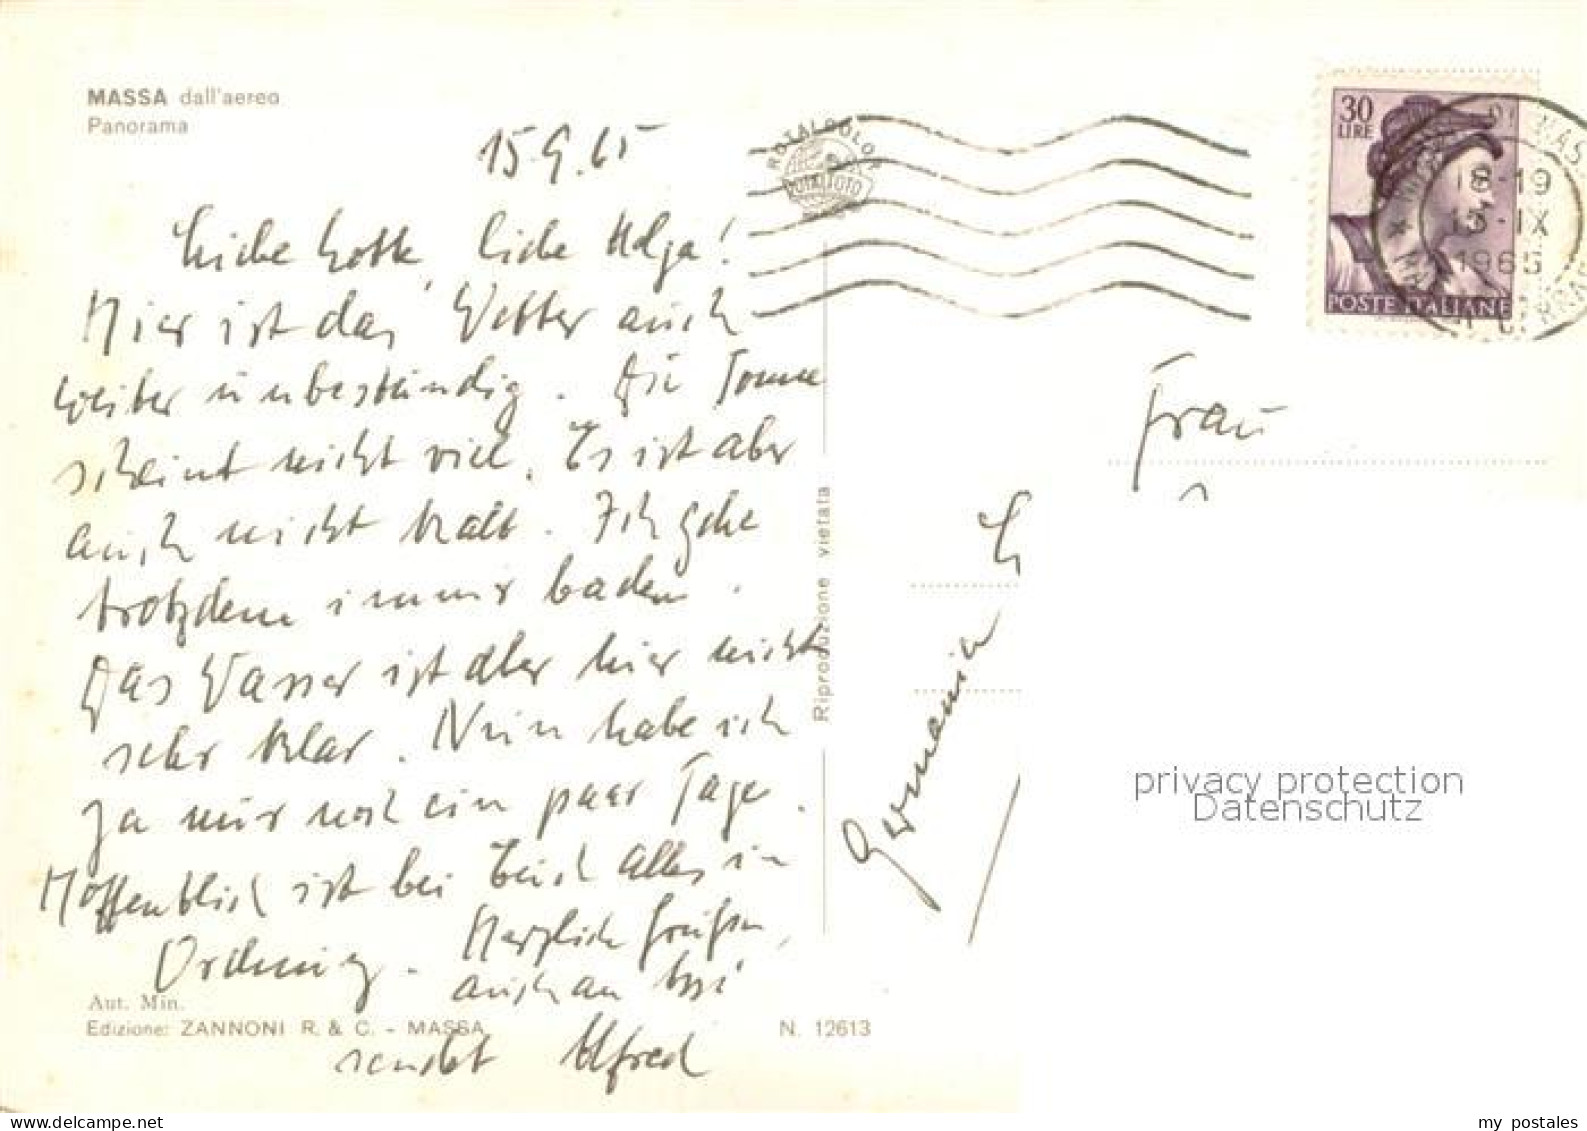 MASSA dall'aereo
Panorama
15.9.65
Liebe Lotte, liebe Helga!
Hier ist das Wetter auch
weiter unbeständig. Die Sonne
scheint nicht viel. Es ist aber
auch nicht kalt. Ich gehe
trotzdem immer baden.
Das Wasser ist aber hier nicht
sehr klar. Nun habe ich
ja nur noch ein paar Tage.
Hoffentlich ist bei Euch alles in
Ordnung. Herzliche Grüße,
auch an
sendet Alfred
Aut. Min.
Edizione: ZANNONI R. & C. - MASSA
N. 12613
Riproduzione vietata
ROTALCOLOR
ROTALFOTO
30
LIRE
POSTE ITALIANE
18-19
15-IX
1965
Frau
Germania
privacy protection
Datenschutz
delcampe.net
my_postales